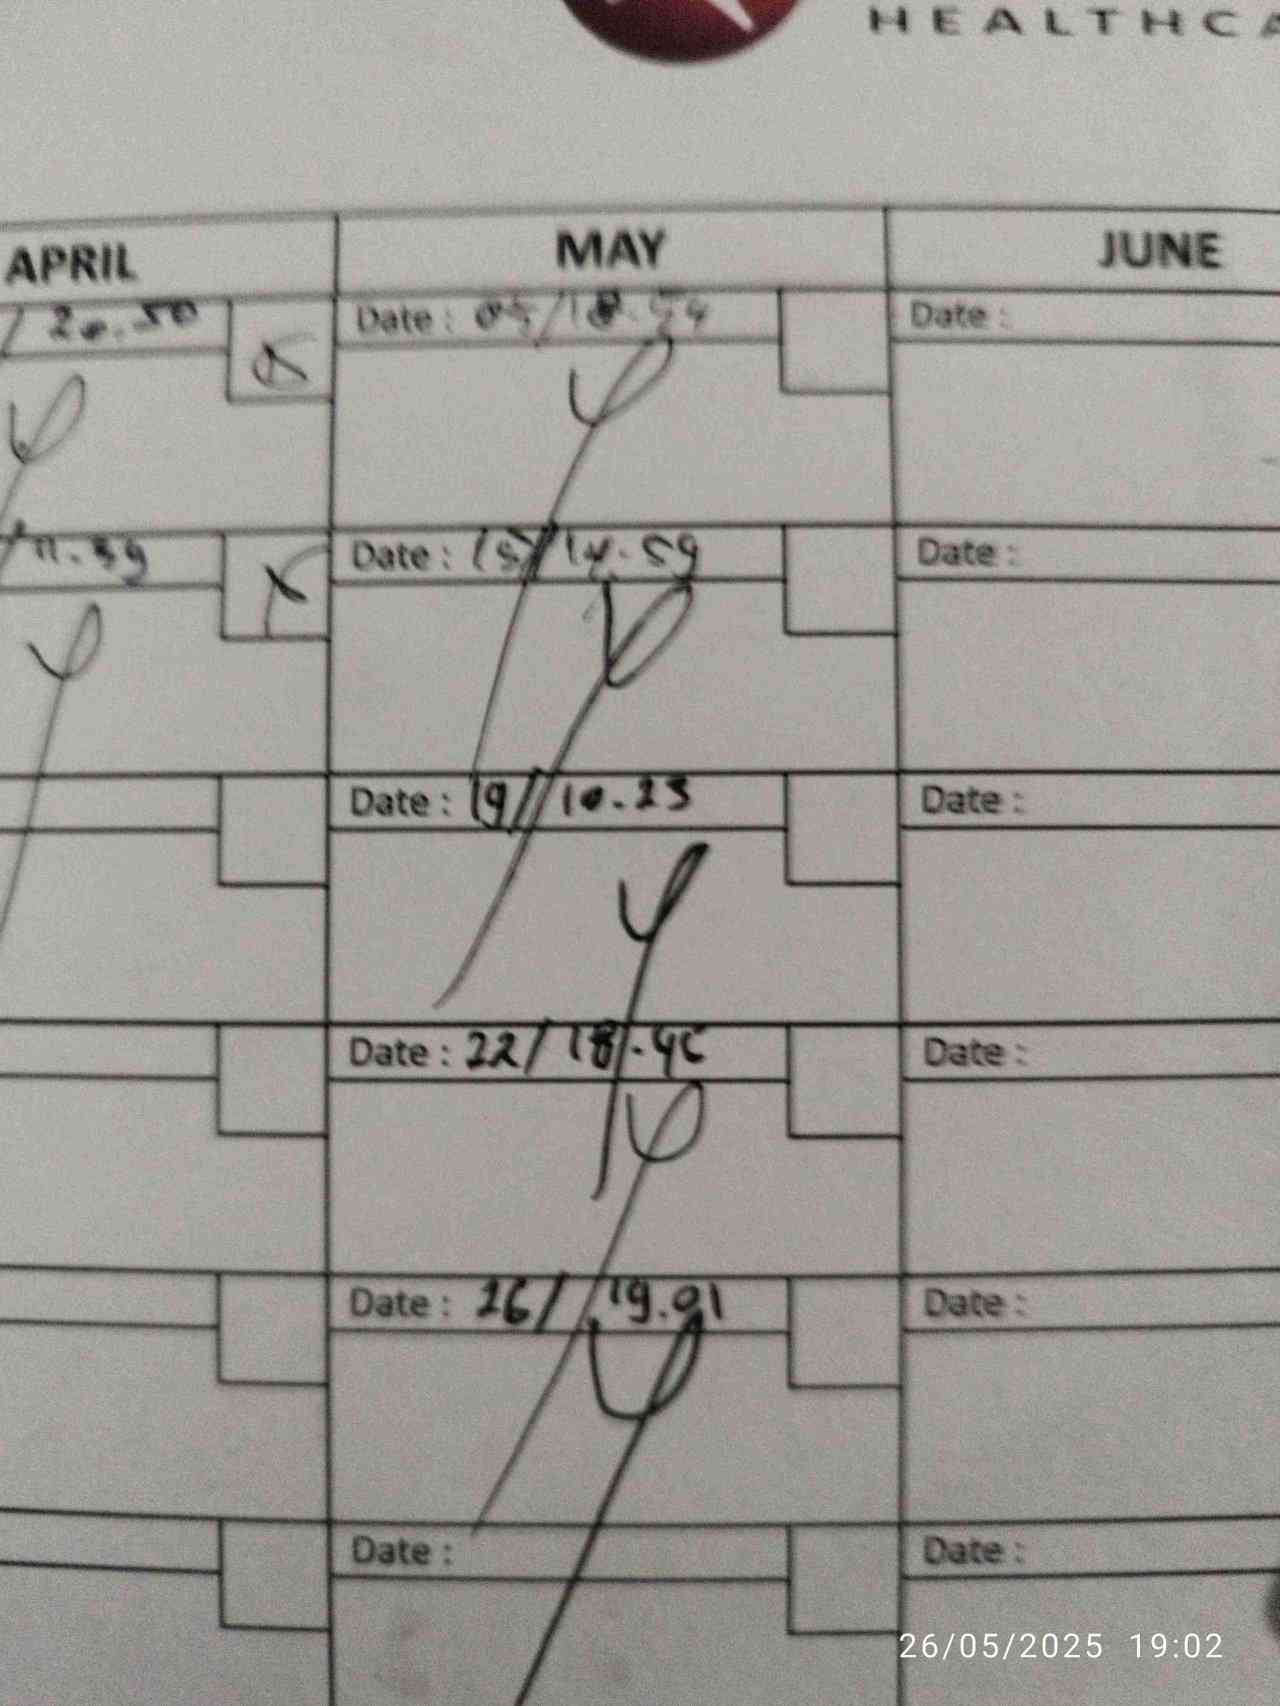 HEALTHCA
APRIL MAY JUNE
/ 20.50 Date : 05/18.54 Date :
/ 11.39 Date : 15/ 14.59 Date :
Date : 19/ 10.23 Date :
Date : 22/ 18.45 Date :
Date : 26/ 19.01 Date :
Date : Date :
26/05/2025 19:02